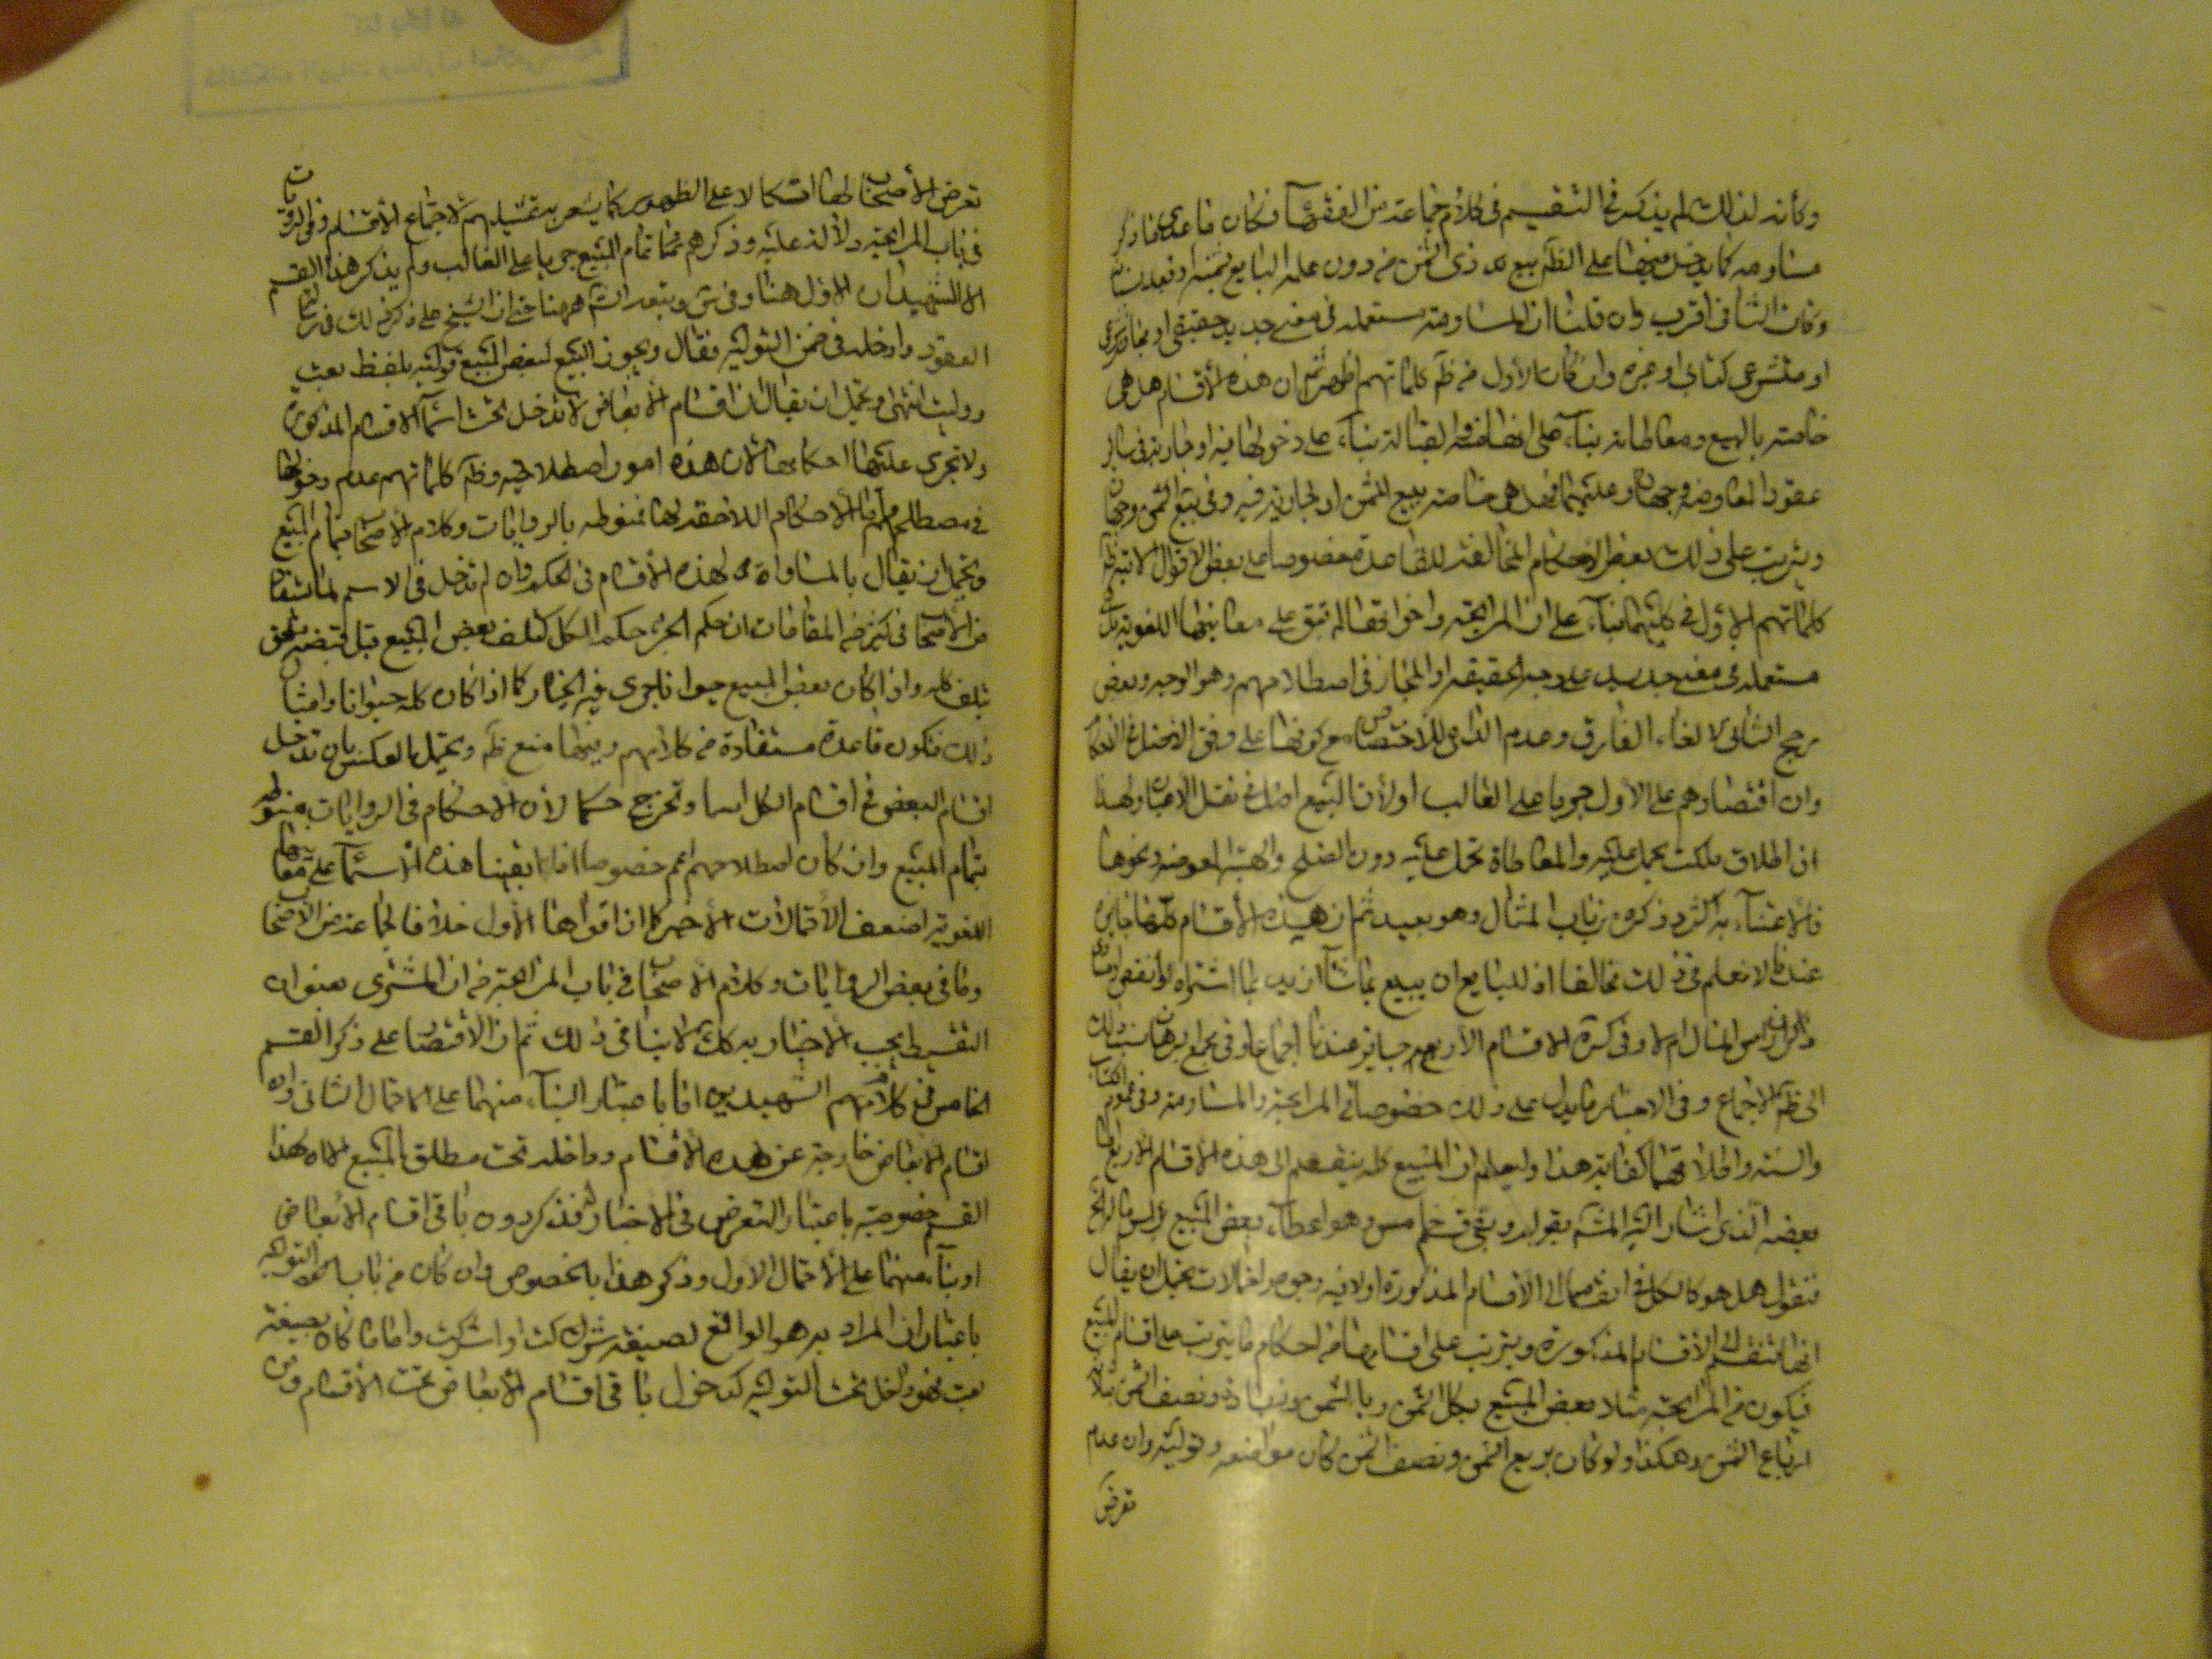 وكأنه لذلك لم يذكر في التقسيم في كلام جماعة من الفقهاء فكان ما عدى ما ذكر
مساومه كما يدخل فيها على الظم بيع ذي الثمن من دون علم البايع بثمنه او بعد
وكان الثاني اقرب وان قلنا ان المساومة مستعملة في معنى جديد حقيقي او مجاز شرعي
او متشرعي كنائي او غيره وان كان الأول من ظم كلماتهم اظهر ثم ان هذه الأقسام هل هي
خاصة بالبيع ومعاطاته بناء على دخولها فيه او جارية في ساير
عقود المعاوضه وجهان وعليهما فهل هي خاصة ببيع الثمن او جارية فيه وفي بيع المثمن وجهان
ويترتب على ذلك بعض الأحكام المخالفة للقاعدة خصوصا على بعض الاقوال الاتية
كلماتهم الأول في كليهما بناء على ان المرابحة واخواتها لم تبق على معانيها اللغوية بل
مستعملة في معنى جديد على وجه الحقيقة او المجاز في اصطلاحهم وهو الوجه وبعض
يرجح الثاني لالغاء الفارق وعدم الداعي للاختصاص مع كونها على وفق
وان اقتصارهم على الاول جريا على الغالب او لأن البيع اصل في نقل الاعيان ولهذا
ان اطلاق ملكت يحمل عليه والمعاطاة تحمل عليه دون الصلح والهبة المعوضه ونحوها
فالاعتناء به اكثر وذكره من باب المثال وهو بعيد ثم ان هذه الأقسام كلها جايزة
عندنا لا نعلم في ذلك مخالفا اذ للبايع ان يبيع بما شاء ازيد مما اشتراه او انقص
ذكر راس المال ام لا وفي كره الاقسام الأربعه جايزة عندنا اجماعا وفي مجمع البرهان نسبته
الى ظم الاجماع وفي الاخبار ما يدل على ذلك خصوصا في المرابحة والمساومة وفي عموم الكتاب
والسنه واطلاقهما كفاية هذا وليعلم ان المبيع كله ينقسم الى هذه الاقسام الاربعة
بعضه الذي اشار اليه المص بقوله وبقي قسم خامس وهو اعطاء بعض المبيع براس ماله
فنقول هل هو كالكل في انقسامه الى الأقسام المذكورة اولا فيه وجوه واحتمالات يحتمل ان يقال
انها تنقسم الى الأقسام المذكورة ويترتب على اقسامها من احكام ما يترتب على اقسام المبيع
فيكون من المرابحة مثلا بعض المبيع بكل الثمن وبالثمن وزيادة ونصف الثمن بثلاثة
ارباع الثمن وهكذا ولو كان بربع الثمن ونصف الثمن كان مواضعه وتوليته وان عدم
تعرض
تعرض الأصحاب لها اتكالا على الظهور كما يشعر به تمثيلهم لاجتماع الأقسام وفي الروايات
في باب المرابحة دلالة عليه وذكرهم تمام المبيع جريا على الغالب ولم يذكر هذا القسم
الا الشهيدان الاول هنا وفي س وتبعه الشم ههنا حتى ان الشيخ علي ذكر ذلك في
العقود وادخله في ضمن التوليه فقال ويجوز البيع لبعض المبيع تولية بلفظ بعت
ووليت انتهى ويحتمل ان يقال ان اقسام الابعاض لا تدخل تحت اسماء الاقسام المذكورة
ولا تجري عليها احكامها لان هذه امور اصطلاحية وظم كلماتهم عدم دخولها
في مصطلحهم اما الاحكام اللاحقة لها فمنوطه بالروايات وكلام الاصحاب بتمام المبيع
ويحتمل ان يقال بالمساواة لهذه الأقسام في الحكم وان لم تدخل في الاسم لما استفاد
من الأصحاب في كثير من المقامات ان حكم الجزء حكم الكل كتلف بعض المبيع قبل قبضه
تلف كله واذا كان بعض المبيع حيوانا يجري فيه الخيار كما اذا كان كله حيوانا وامثال
ذلك فتكون قاعدة مستفادة من كلامهم وفيها منع ظم ويحتمل بالعكس بان تدخل
اقسام البعض في اقسام الكل اسما وتخرج حكما لأن الاحكام في الروايات منوطة
بتمام المبيع وان كان اصطلاحهم اعم خصوصا اذا ابقينا هذه الاسماء على معانيها
اللغوية واضعف الاحتمالات الأخير كما ان اقواها الأول خلافا لجماعة من الأصحاب
وما في بعض الروايات وكلام الأصحاب في باب المرابحة من ان المشتري بعنوان
التقسيط يجب الاخبار به كك لا ينافي ذلك ثم ان الأقتصار على ذكر القسم
الخامس في كلامهم الشهيدين اما باعتبار البناء منهما على الاحتمال الثاني وان
اقسام الابعاض خارجة عن هذه الأقسام وداخله تحت مطلق المبيع الا ان لهذا
القسم خصوصية باعتبار التعرض في الاخبار فذكر دون باقي اقسام الابعاض
او بناء منهما على الاحتمال الاول وذكر هذا بالخصوص وان كان من باب التوليه
باعتبار ان المراد به هو الواقع لصيغة شركت او اشركت واما ما كان بصيغة
بعت فهو داخل تحت التوليه كدخول باقي اقسام الابعاض تحت الاقسام ومن